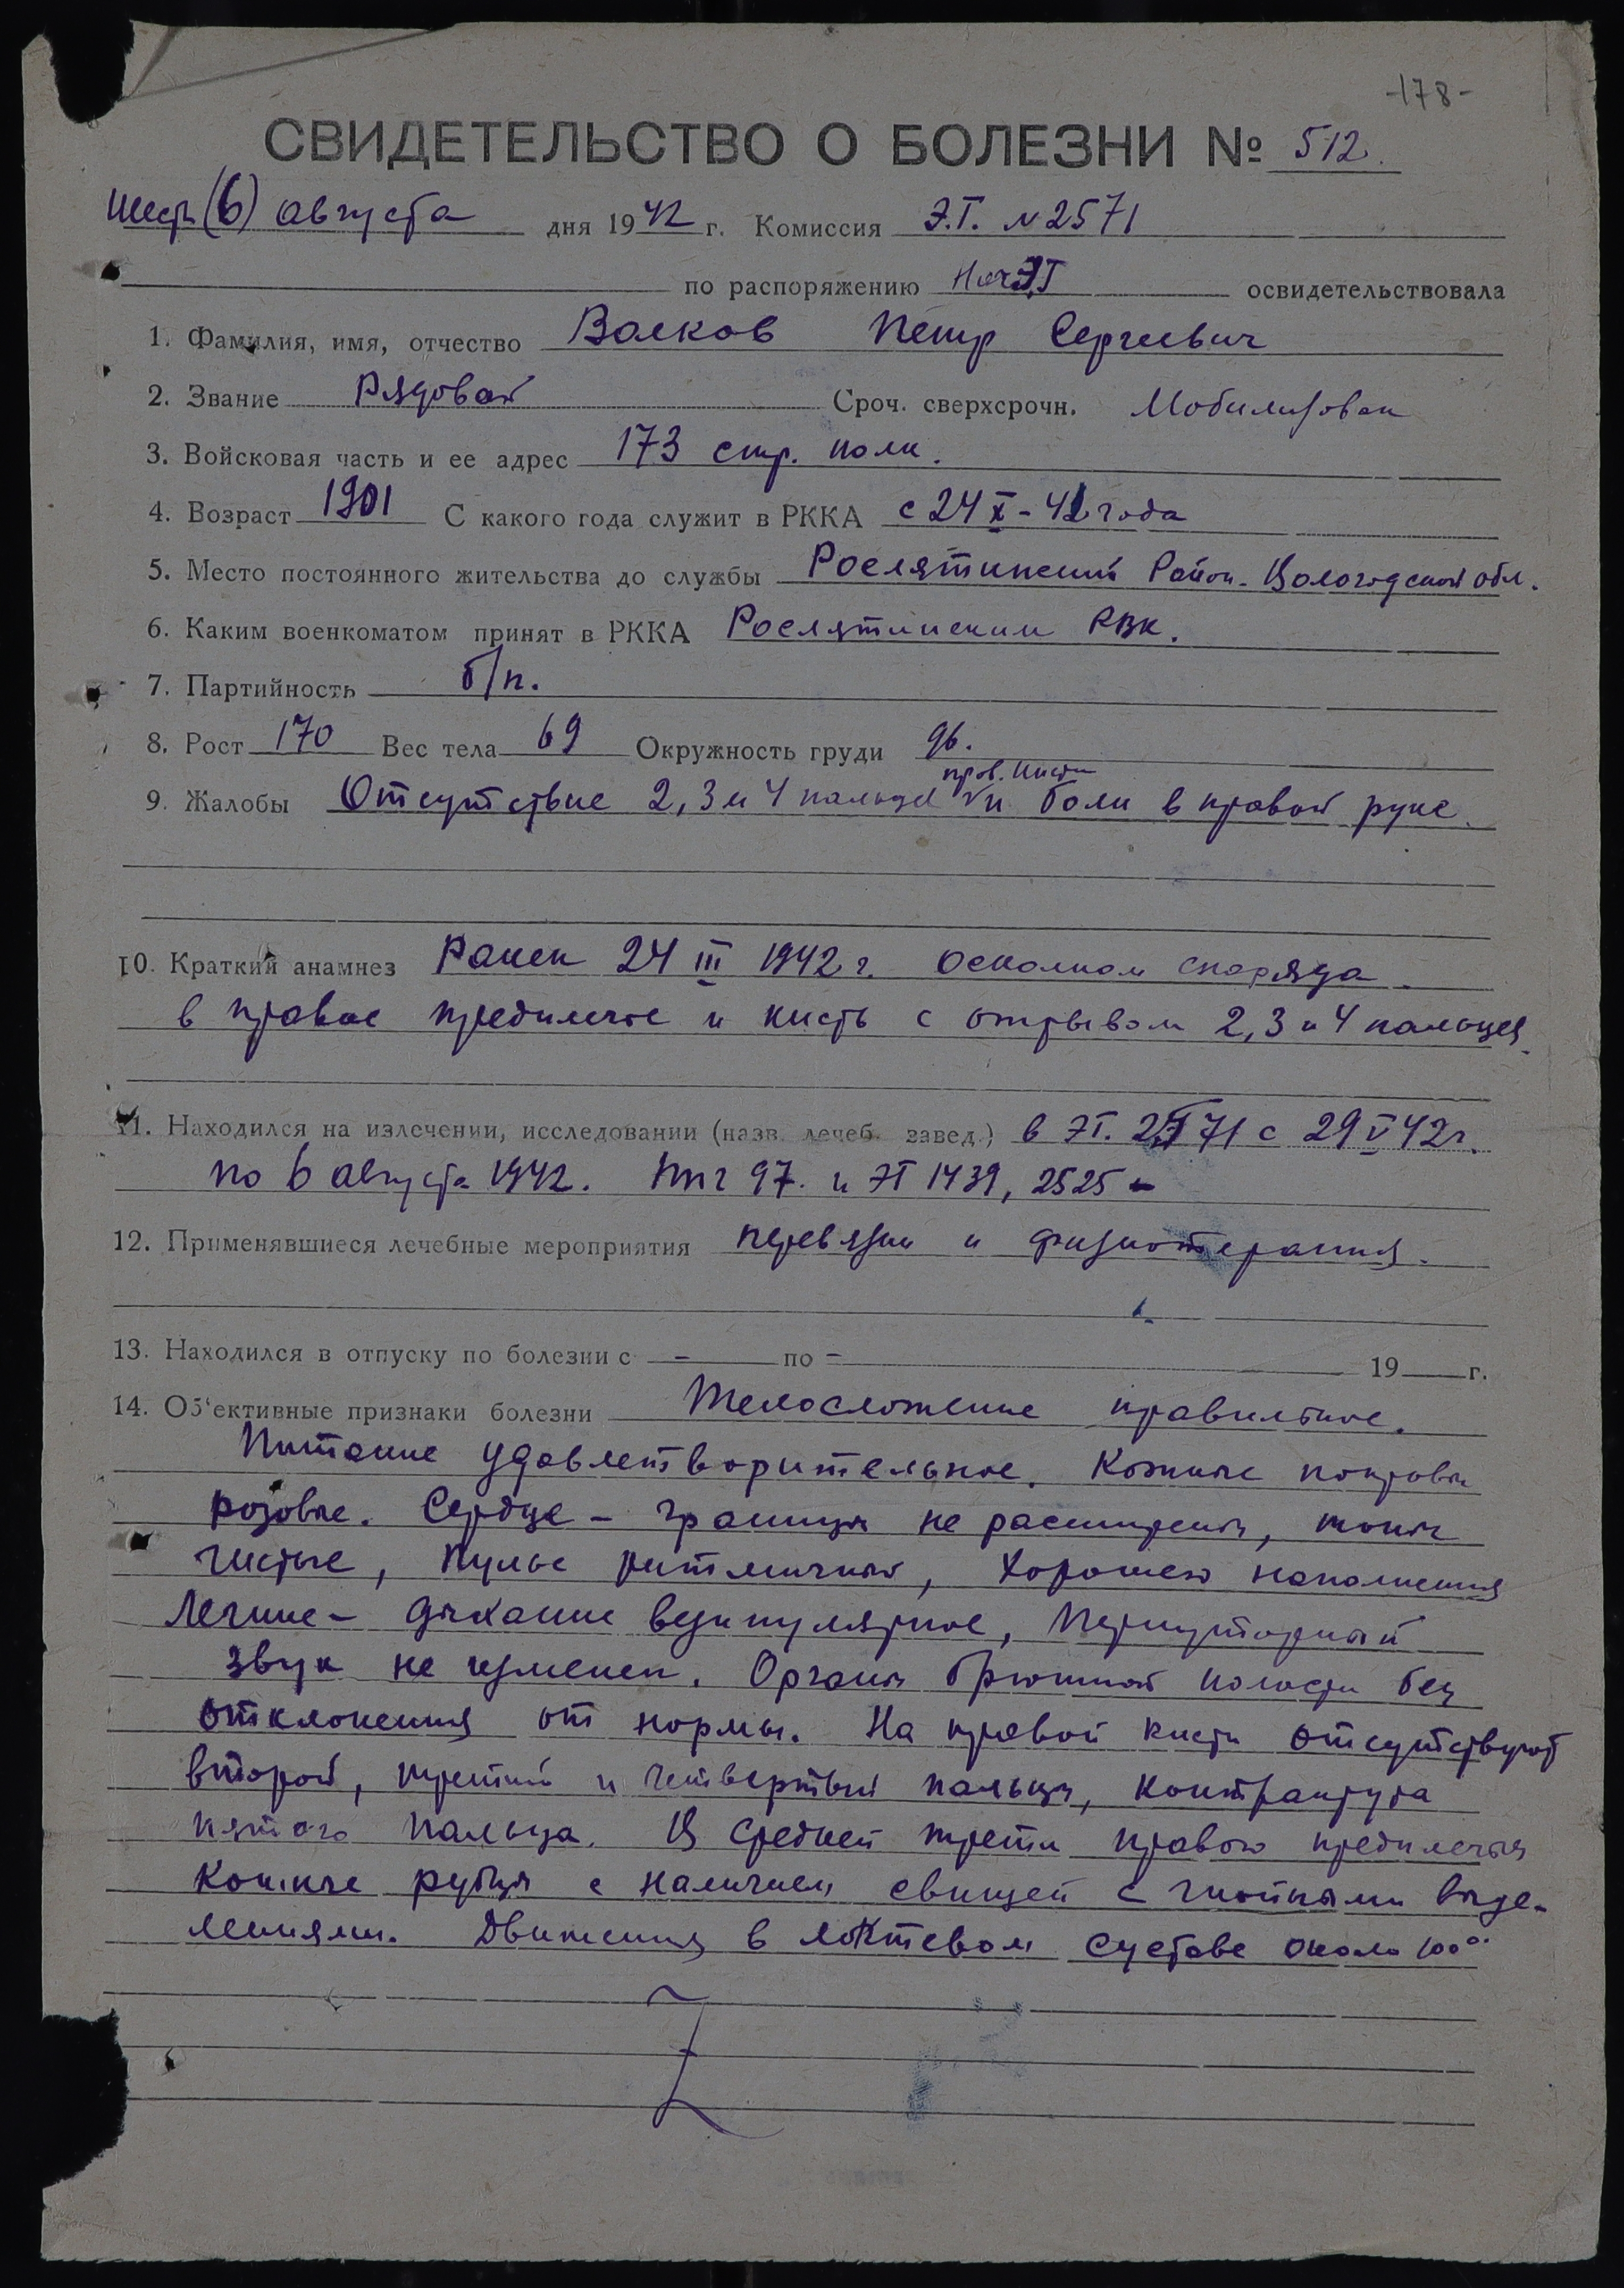 -178-
СВИДЕТЕЛЬСТВО О БОЛЕЗНИ № 512.
шесть (6) августа дня 1942 г. Комиссия Э.Г. №2571
по распоряжению Нач ЭГ освидетельствовала
1. Фамилия, имя, отчество Волков Петр Сергеевич
2. Звание Рядовой Сроч. сверхсрочн. Мобилизован
3. Войсковая часть и ее адрес 173 стр. полк.
4. Возраст 1901 С какого года служит в РККА с 24 X - 41 года
5. Место постоянного жительства до службы Рослятинский Район. Вологодской обл.
6. Каким военкоматом принят в РККА Рослятинским РВК.
7. Партийность б/п.
8. Рост 170 Вес тела 69 Окружность груди 96.
прав. кисти
9. Жалобы Отсутствие 2, 3 и 4 пальца и боли в правой руке.
10. Краткий анамнез Ранен 24 III 1942 г. осколком снаряда
в правое предплечье и кисть с отрывом 2, 3 и 4 пальцев.
11. Находился на излечении, исследовании (назв. лечеб. завед.) в ЭГ. 2571 с 29 V 42 г.
по 6 августа 1942. ППГ 97. и ЭГ 1439, 2525
12. Применявшиеся лечебные мероприятия перевязки и физиотерапия.
13. Находился в отпуску по болезни с - по - 19 г.
14. Об‘ективные признаки болезни Телосложение правильное.
Питание удовлетворительное. Кожные покровы
розовые. Сердце – границы не расширены, тоны
чистые, пульс ритмичный, хорошего наполнения
Легкие – дыхание везикулярное, перкуторный
звук не изменен. Органы брюшной полости без
отклонения от нормы. На правой кисти отсутствуют
второй, третий и четвертый пальцы, контрактура
пятого пальца. В средней трети правого предплечья
кожные рубцы с наличием свищей с гнойными выде-
лениями. Движения в локтевом суставе около 100°.